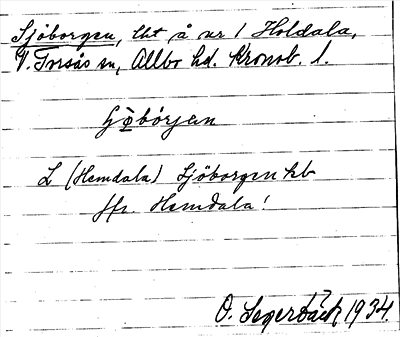 Sjöborgen, tht å nr 1 Holdala,
V. Torsås sn, Allbo hd. Kronob. l.
bórjan
L (Hemdala) Sjöborgen hb
jfr. Hemdala!
O. Segerbäck 1934.